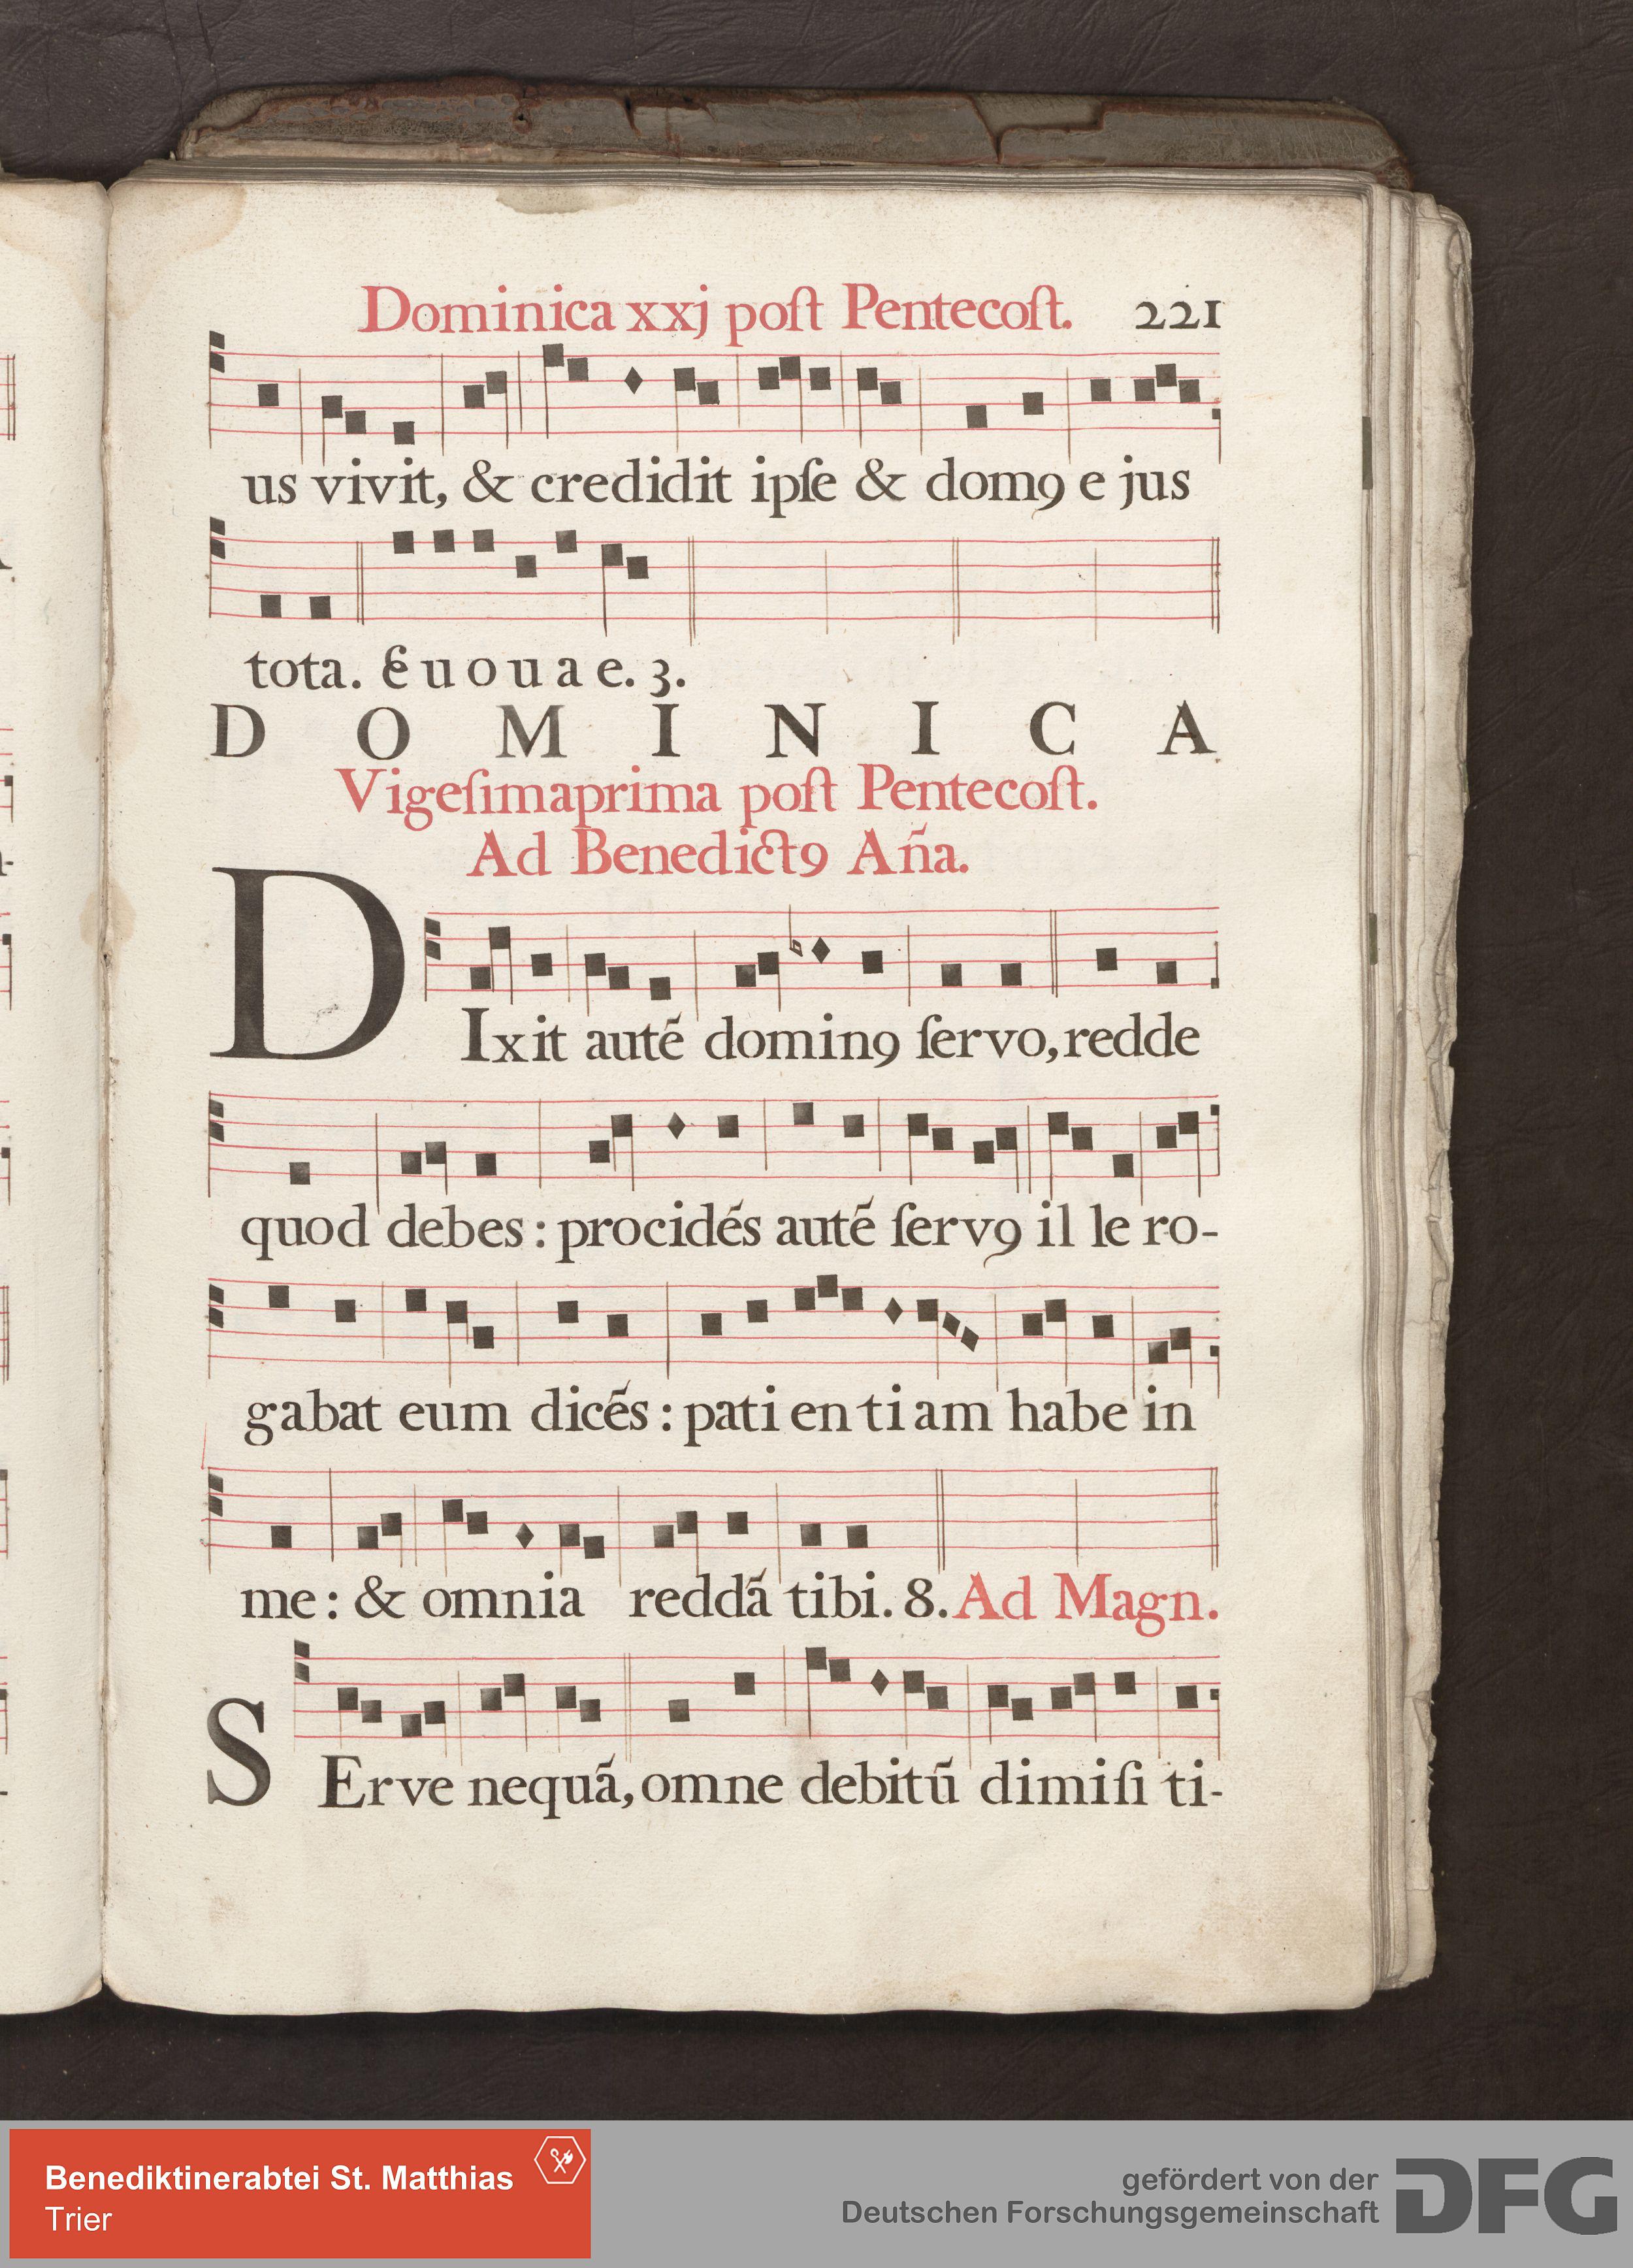 Dominica xxj poſt Pentecoſt. 221
us vivit, & credidit ipſe & domꝯ e jus
tota. Euouae. 3.
DOMINICA
Vigeſimaprima poſt Pentecoſt.
Ad Benedictꝯ Aña.
DIxit autē dominꝯ ſervo, redde
quod debes : procidēs autē ſervꝯ il le ro-
gabat eum dicēs : pati en ti am habe in
me : & omnia reddā tibi. 8. Ad Magn.
SErve nequā, omne debitū dimiſi ti-
Benediktinerabtei St. Matthias
Trier
gefördert von der
Deutschen Forschungsgemeinschaft
DFG